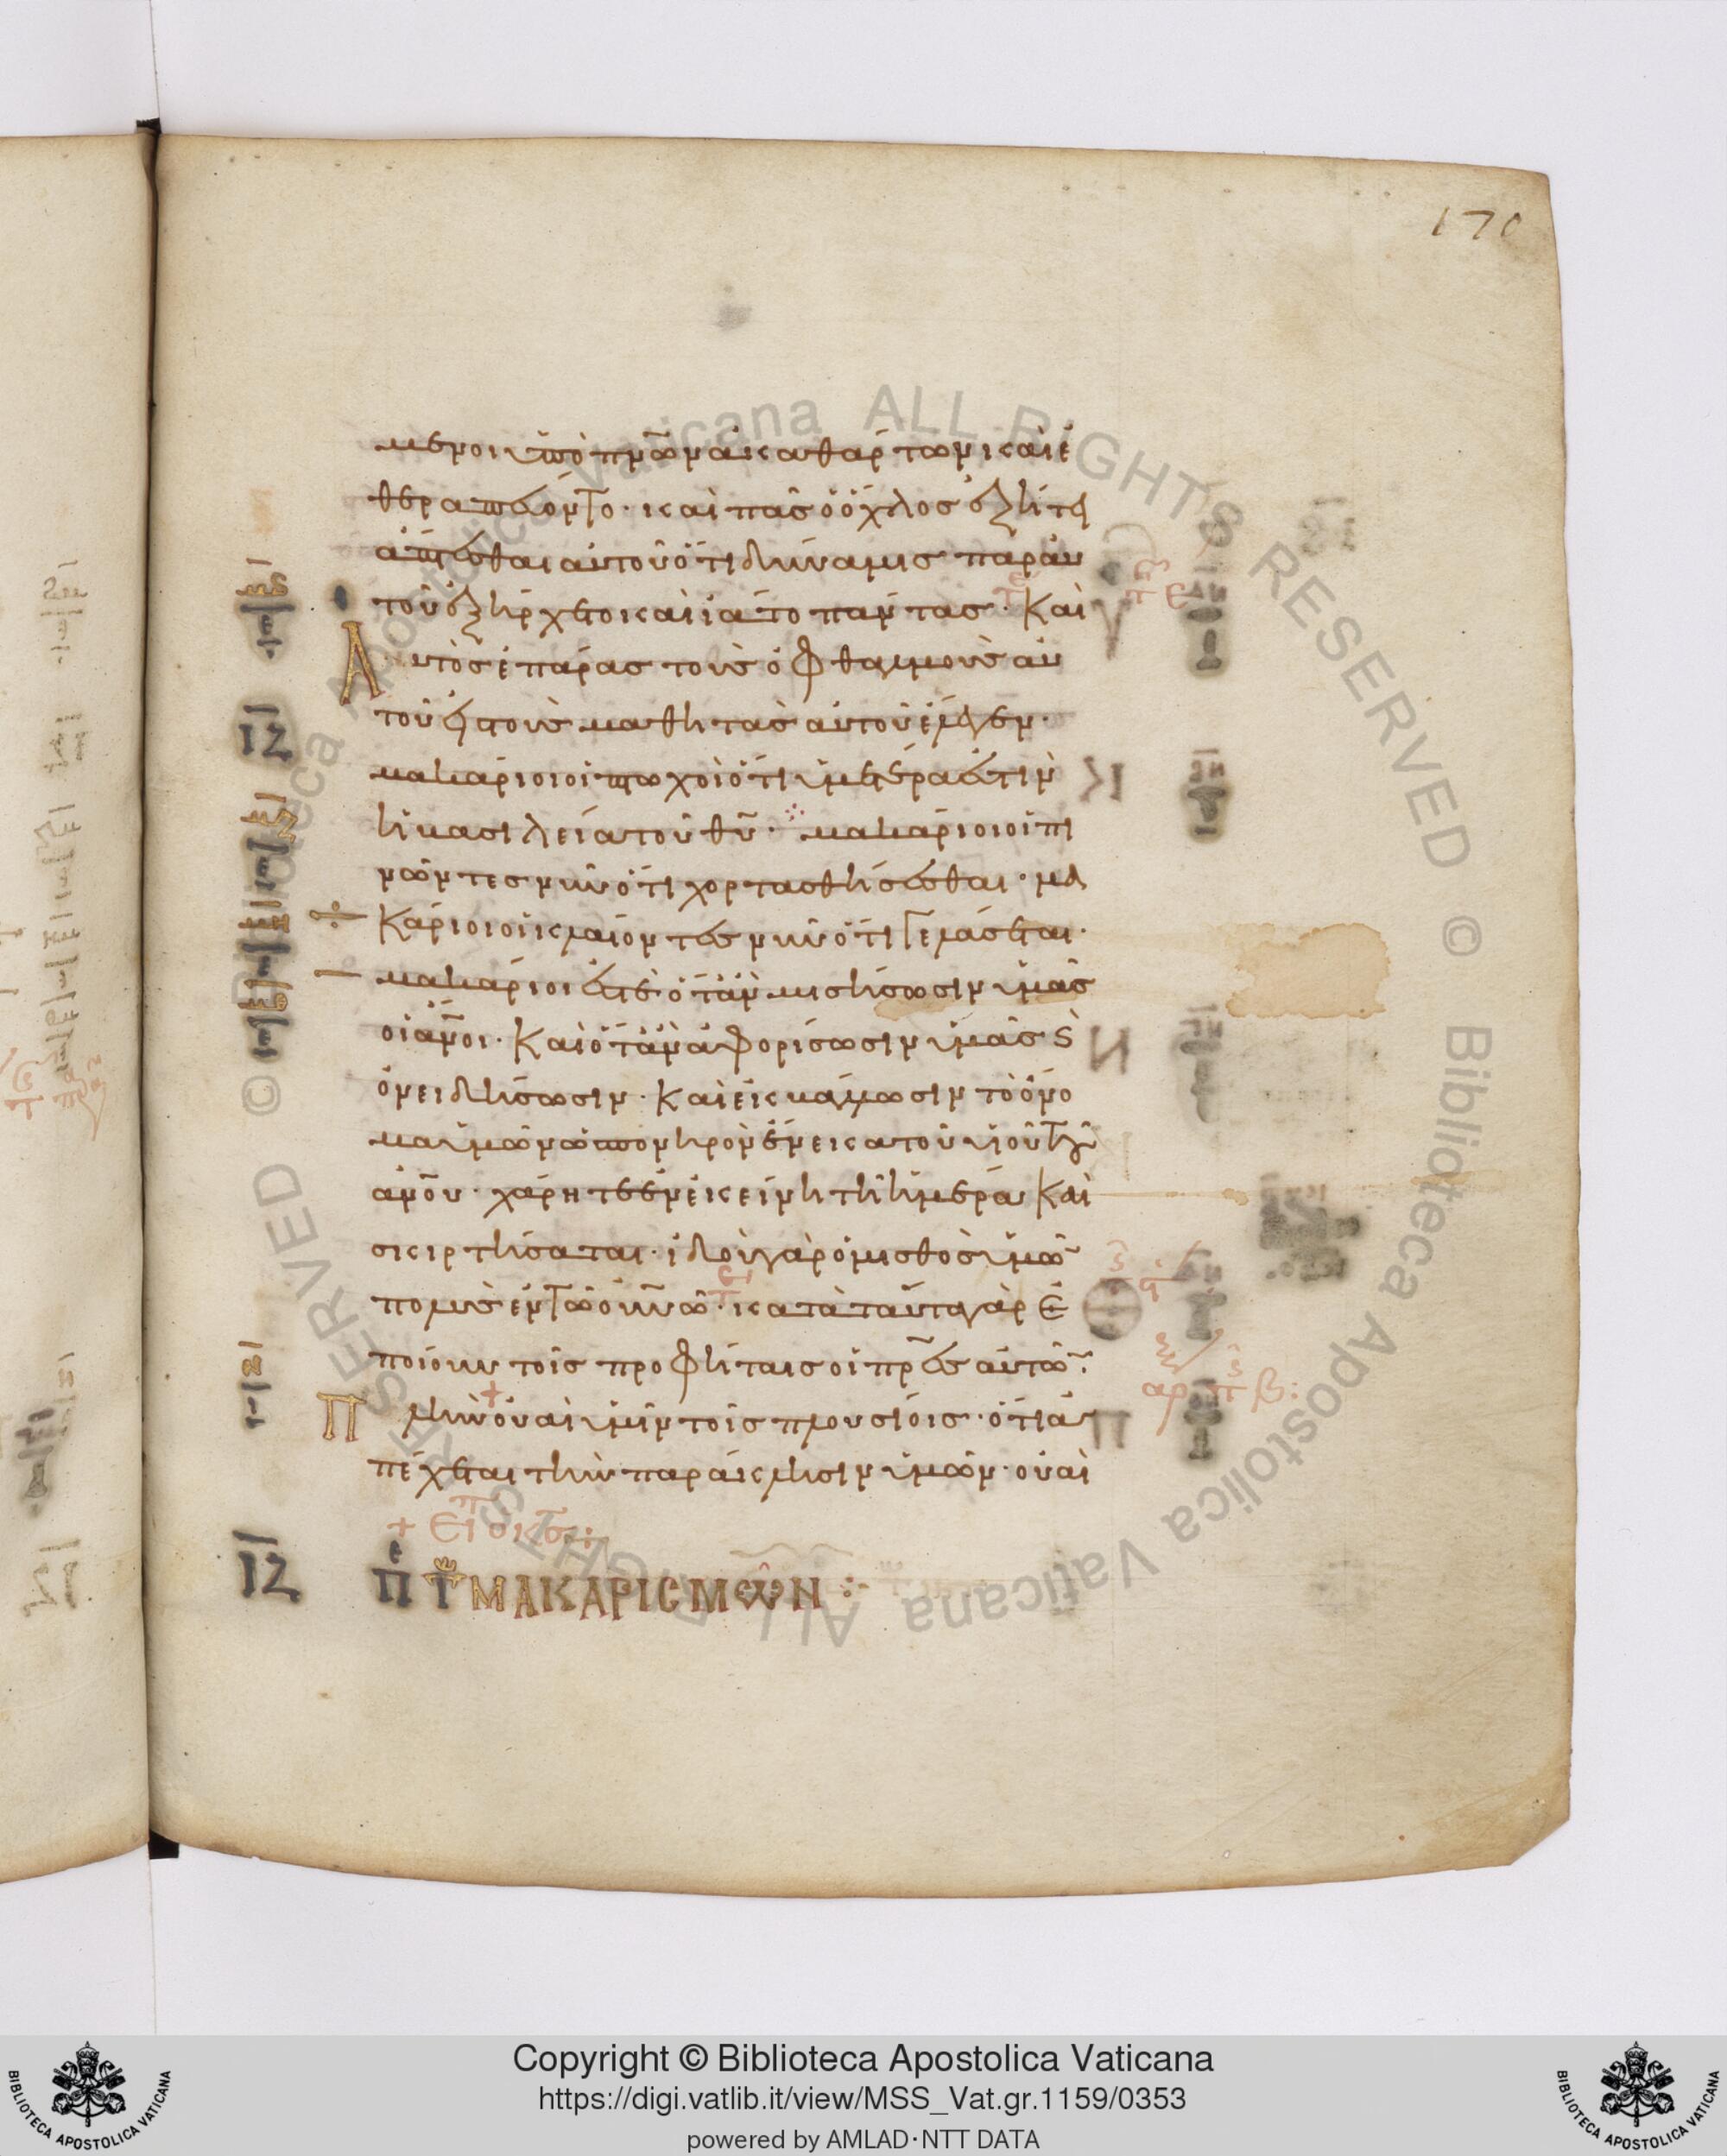 170
μενοι ὑπὸ πνω̅ν ἀκαθάρτων καὶ ἐ
θεραπεύοντο· καὶ πᾶς ὁ ὄχλος ἐζήτει
ἅπτεσθαι αὐτοῦ ὅτι δύναμις παρ' αὐ
τοῦ ἐξήρχετο καὶ ἰάτο πάντας· Καὶ
Αὐτὸς ἐπάρας τοὺς ὀφθαλμοὺς αὐ
τοῦ εἰς τοὺς μαθητὰς αὐτοῦ ἔλεγεν·
μακάριοι οἱ πτωχοὶ ὅτι ὑμετέρα ἐστὶν
ἡ βασιλεία τοῦ θυ̅· μακάριοι οἱ πι
νῶντες νῦν ὅτι χορτασθήσεσθαι· μα
κάριοι οἱ κλαίοντες νῦν ὅτι γελάσεται·
μακάριοι ἐστὲ ὅταν μισήσωσιν ὑμᾶς
οἱ ἄνο̅ι· Καὶ ὅταν ἀφορίσωσιν ὑμᾶς ϗ
ὀνειδήσωσιν· Καὶ ἐκβάλωσιν τὸ ὄνο
μα ὑμῶν ὡς πονηρὸν ἕνεκα τοῦ υἱοῦ τοῦ
ανο̅υ· χάρητε ἐν ἐκείνη τῆ ἡμέρα Καὶ
σκιρτήσαται· ἰδοὺ γὰρ ὁ μισθὸς ὑμῶ
πολὺς ἐν τῶ οὐνῶ· κατὰ ταῦτα γὰρ ἐ
ποίουν τοῖς προφήταις οἱ πρε̅ς αὐτῶ:
Πλὴν οὐαὶ ὑμῖν τοῖς πλουσίοις· ὅτι ἀ
πέχεται τὴν παράκλησιν ὑμῶν· οὐαὶ
ΙΖ Πε Τ ΜΑΚΑΡΙΣΜΩΝ
Copyright © Biblioteca Apostolica Vaticana
https://digi.vatlib.it/view/MSS_Vat.gr.1159/0353
powered by AMLAD·NTT DATA
BIBLIOTECA APOSTOLICA VATICANA
BIBLIOTECA APOSTOLICA VATICANA
© Biblioteca Apostolica Vaticana ALL RIGHTS RESERVED © Biblioteca Apostolica Vaticana ALL RIGHTS RESERVED